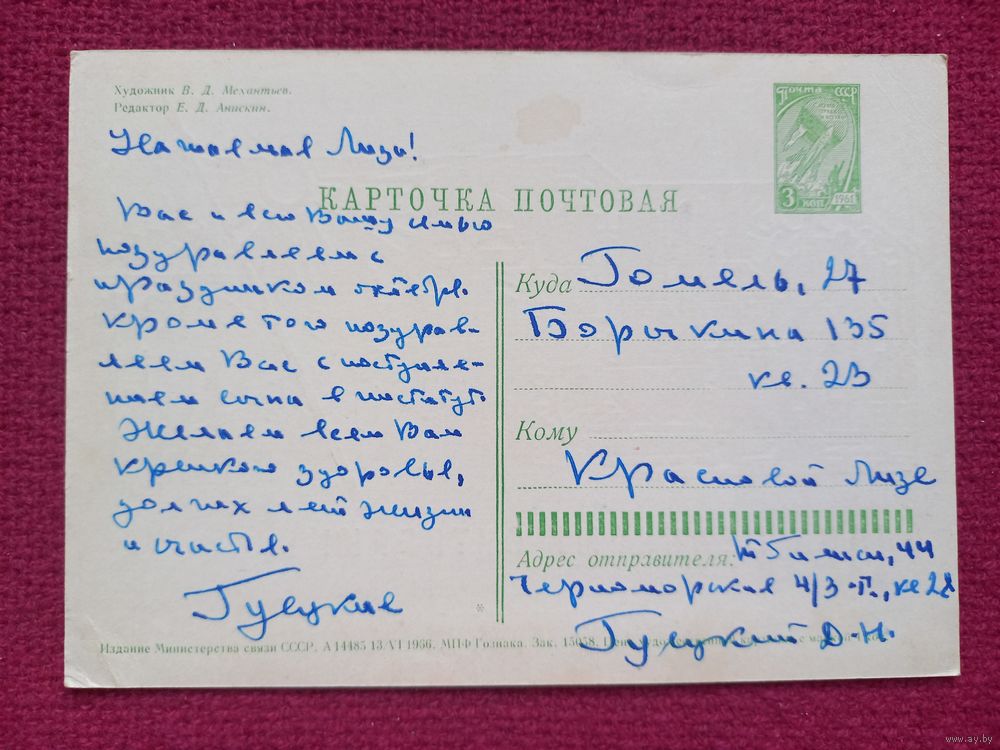 Художник В. Д. Механтьев.
Редактор Е. Д. Анискин.
Почта СССР
3 коп 1961
КАРТОЧКА ПОЧТОВАЯ
Лиза!
Вас и всю Вашу семью
поздравляем с
праздником октябр.
кроме того поздрав-
ляем Вас с поступле-
нием сына в институт.
Желаем всем Вам
крепкого здоровья,
долгих лет жизни
и счастья.
Гуецкие
Куда Гомель, 27
Борыкина 135
кв. 23
Кому
Красновой Лизе
Адрес отправителя: Тбилиси, 44
Черноморская 4/3 кв 28
Гуецкий Д. Н.
*
Издание Министерства связи СССР. А 14485 13/VI 1966. МПФ Гознака. Зак. 15058.
www.ay.by